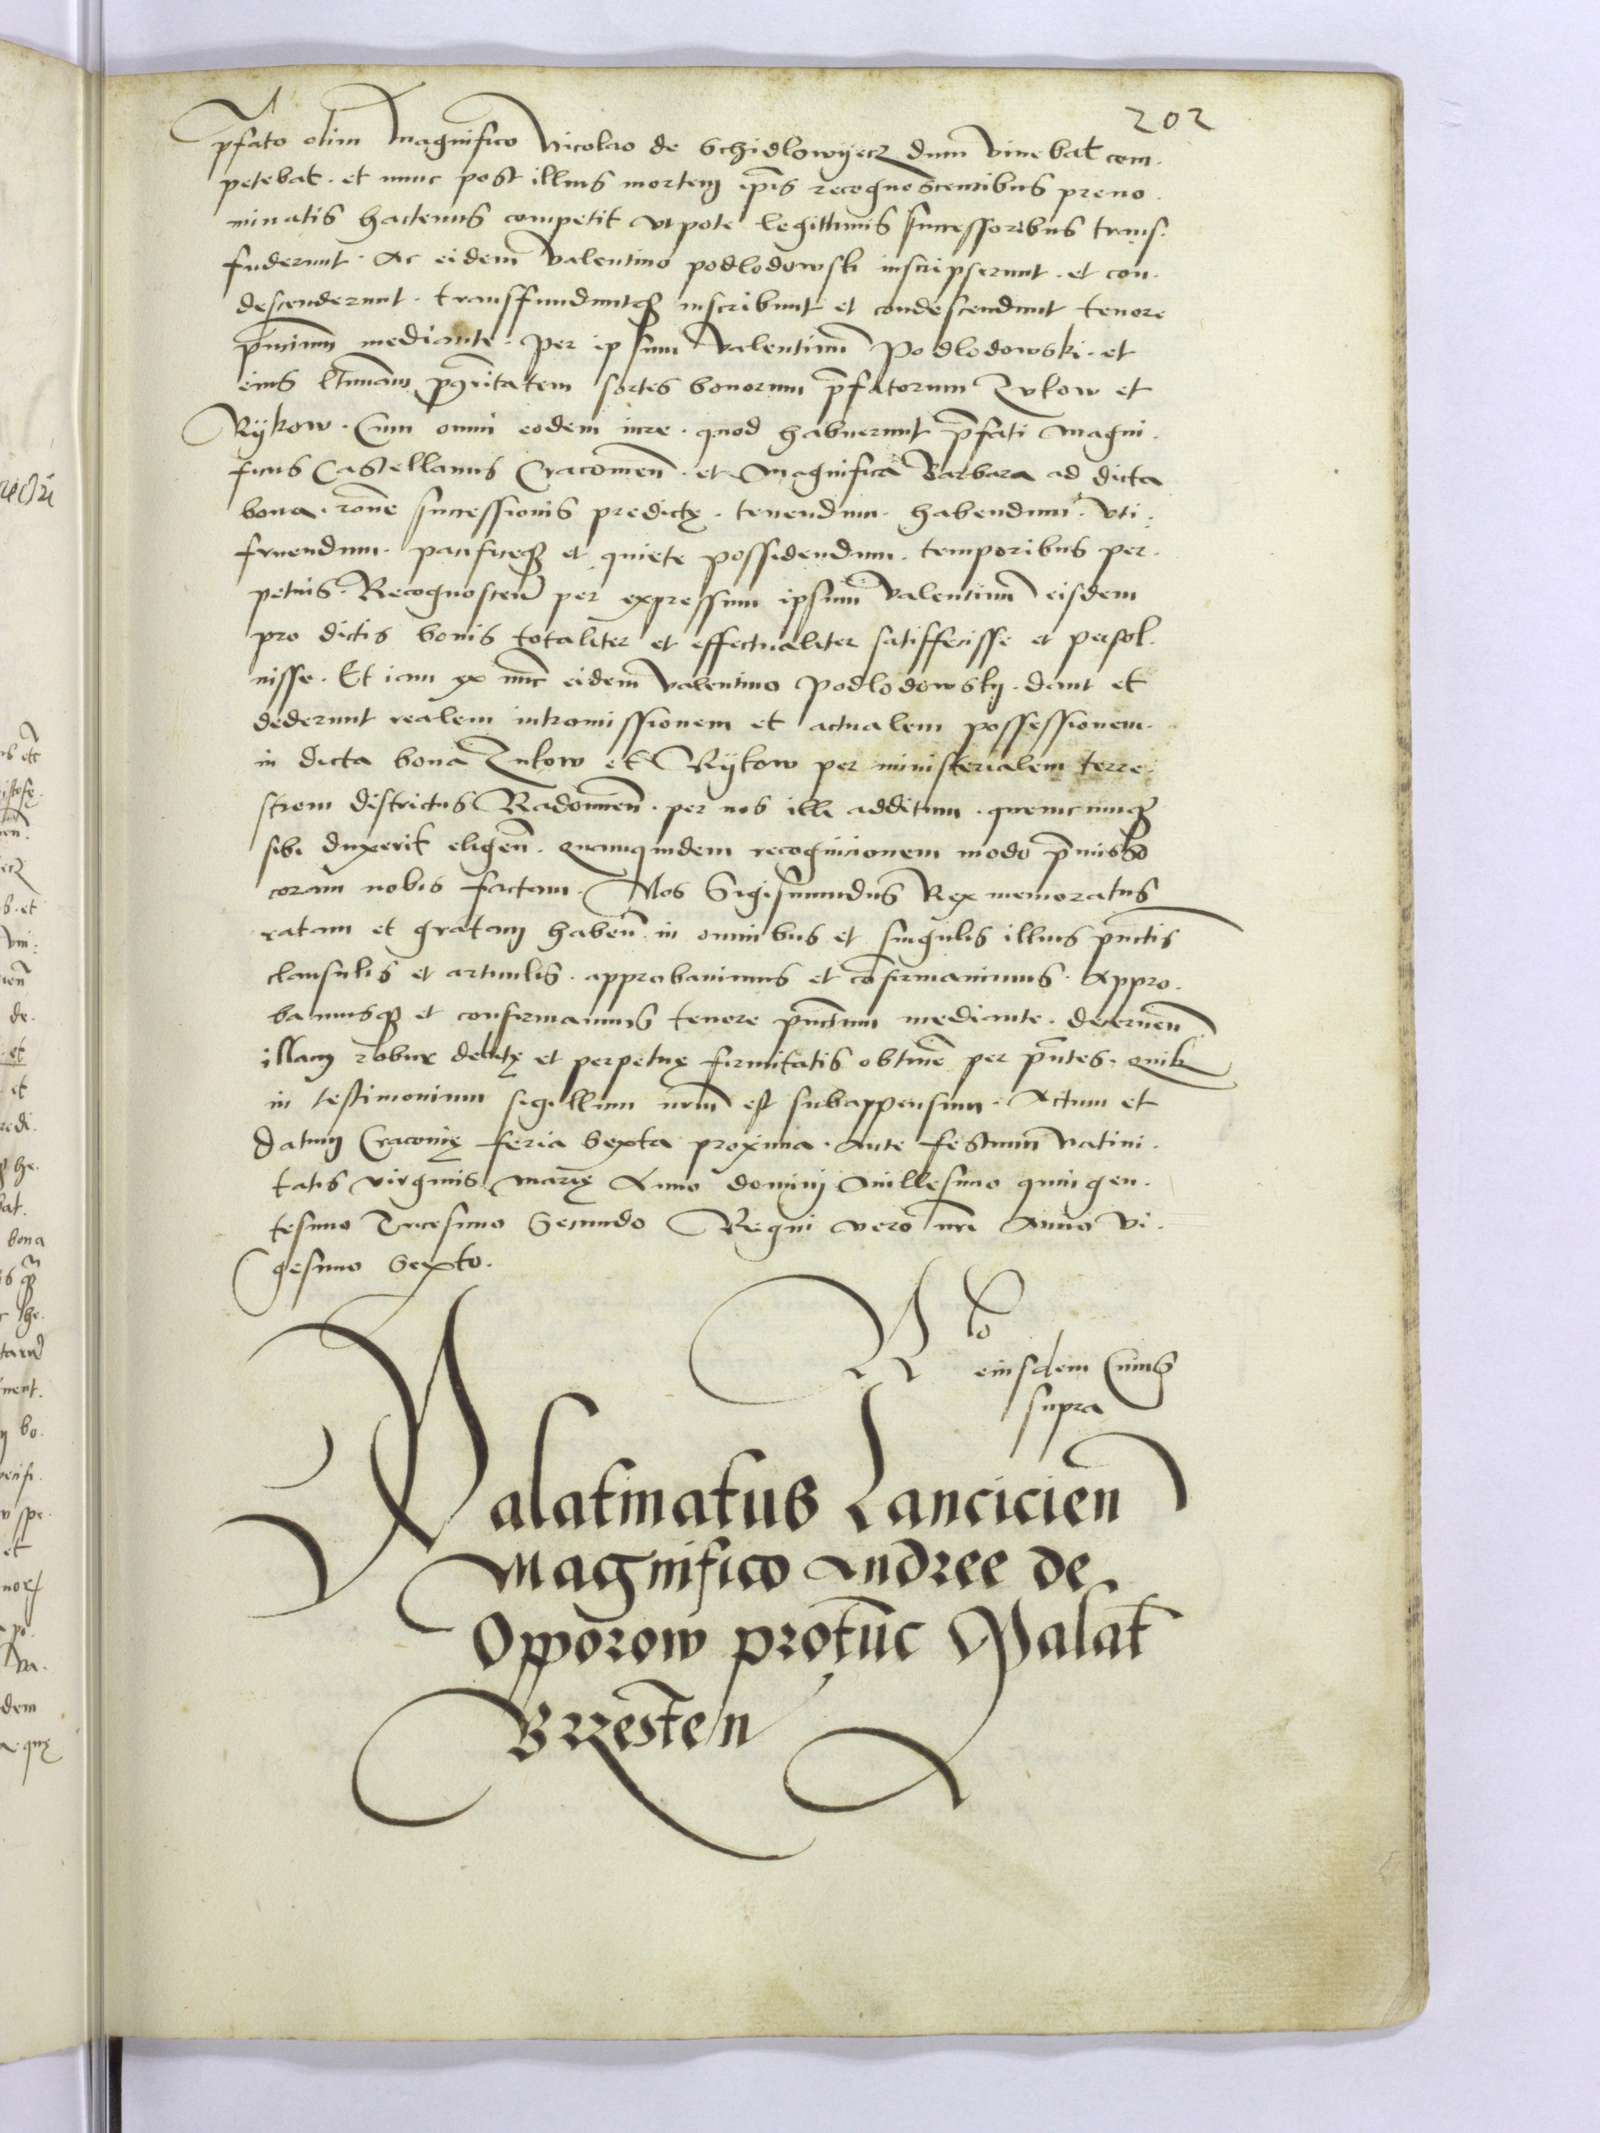 202
pfato olim Magnifico Nicolao de Schidlowyecz dum vivebat com.
petebat. et nunc post illius mortem ipis recognoscentibus preno.
minatis hactenus competit utpote legittimis successoribus trans.
fuderunt. Ac eidem Valentino podlodowski inscripserunt. et con.
descenderunt. transffunduntqꝫ inscribunt et condescendunt tenore
pñcium mediante. Per ipsum Valentinum Podlodowski. et
eius ltimam pqritatem sortes bonorum p̄fatorum Zukow et
Rykow. Cum omni eodem iure. quod habuerunt p̄fati Magni.
ficus Castellanus Cracovien̄. et Magnifica Barbara ad dicta
bona. rone successionis predictę. tenendum. habendum. uti.
fruendum. pacificeqꝫ et quiete possidendum. temporibus per.
petuis. Recognoscen̄ per expressum ipsum Valentinum eisdem
pro dictis bonis totaliter et effectualiter satiffecisse et persol.
uisse. Et iam ex nunc eidem Valentino Podlodowsky. dant et
dederunt realem intromissionem et actualem possessionem.
in dicta bona Zukow et Rykow per ministerialem terre.
strem districtus Radomien̄. per nos illi additum. quemcumqꝫ
sibi duxerit eligen̄. Quamquidem recognicionem modo p̄misso
coram nobis factam. Nos Sigismundus Rex memoratus
ratam et gratam haben̄ in omnibus et singulis illius punctis
clausulis et articulis. approbavimus et cōfirmavimus. Appro.
bamusqꝫ et confirmamus tenore pñtium mediante. decernen̄
illam robur debitę et perpetuę firmitatis obtinē per pñtes. Quibꝫ
in testimonium sigillum nrm̄ est subappensum. Actum et
datum Cracovię feria Sexta proxima. Ante festum Nativi.
tatis virginis Marię Anno domini Millesimo quingen.
tesimo Tricesimo Secundo Regni vero nrī Anno Vi.
gesimo Sexto.
Rlo
eiusdem Cuius
supra
Palatinatus Lancicien̄
Magnifico Andree de
Opporow protūc Palat̄
Brzesten̄